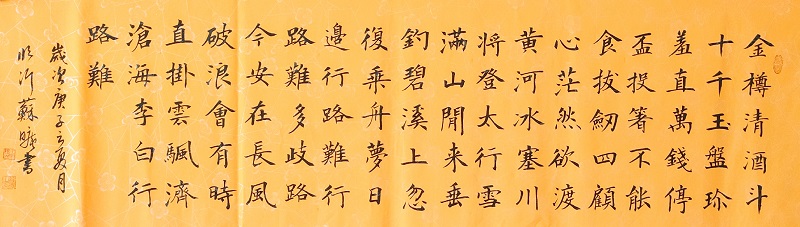 金樽清酒斗
十千玉盤珎
羞直萬錢停
盃投箸不能
食拔劒四顧
心茫然欲渡
黄河冰塞川
將登太行雪
滿山閒来垂
釣碧溪上忽
復乘舟夢日
邊行路難行
路難多歧路
今安在長風
破浪會有時
直掛雲颿濟
滄海李白行
路難
歲次庚子之夏月
臨沂蘇書